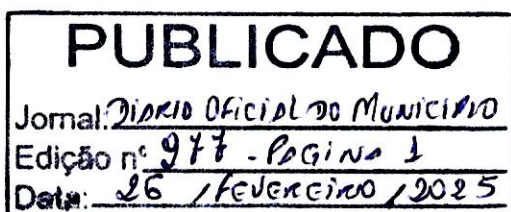 PUBLICADO
Jornal: DIARIO OFICIAL DO MUNICIPIO
Edição nº 977 - PAGINA 1
Data: 26 / FEVEREIRO / 2025